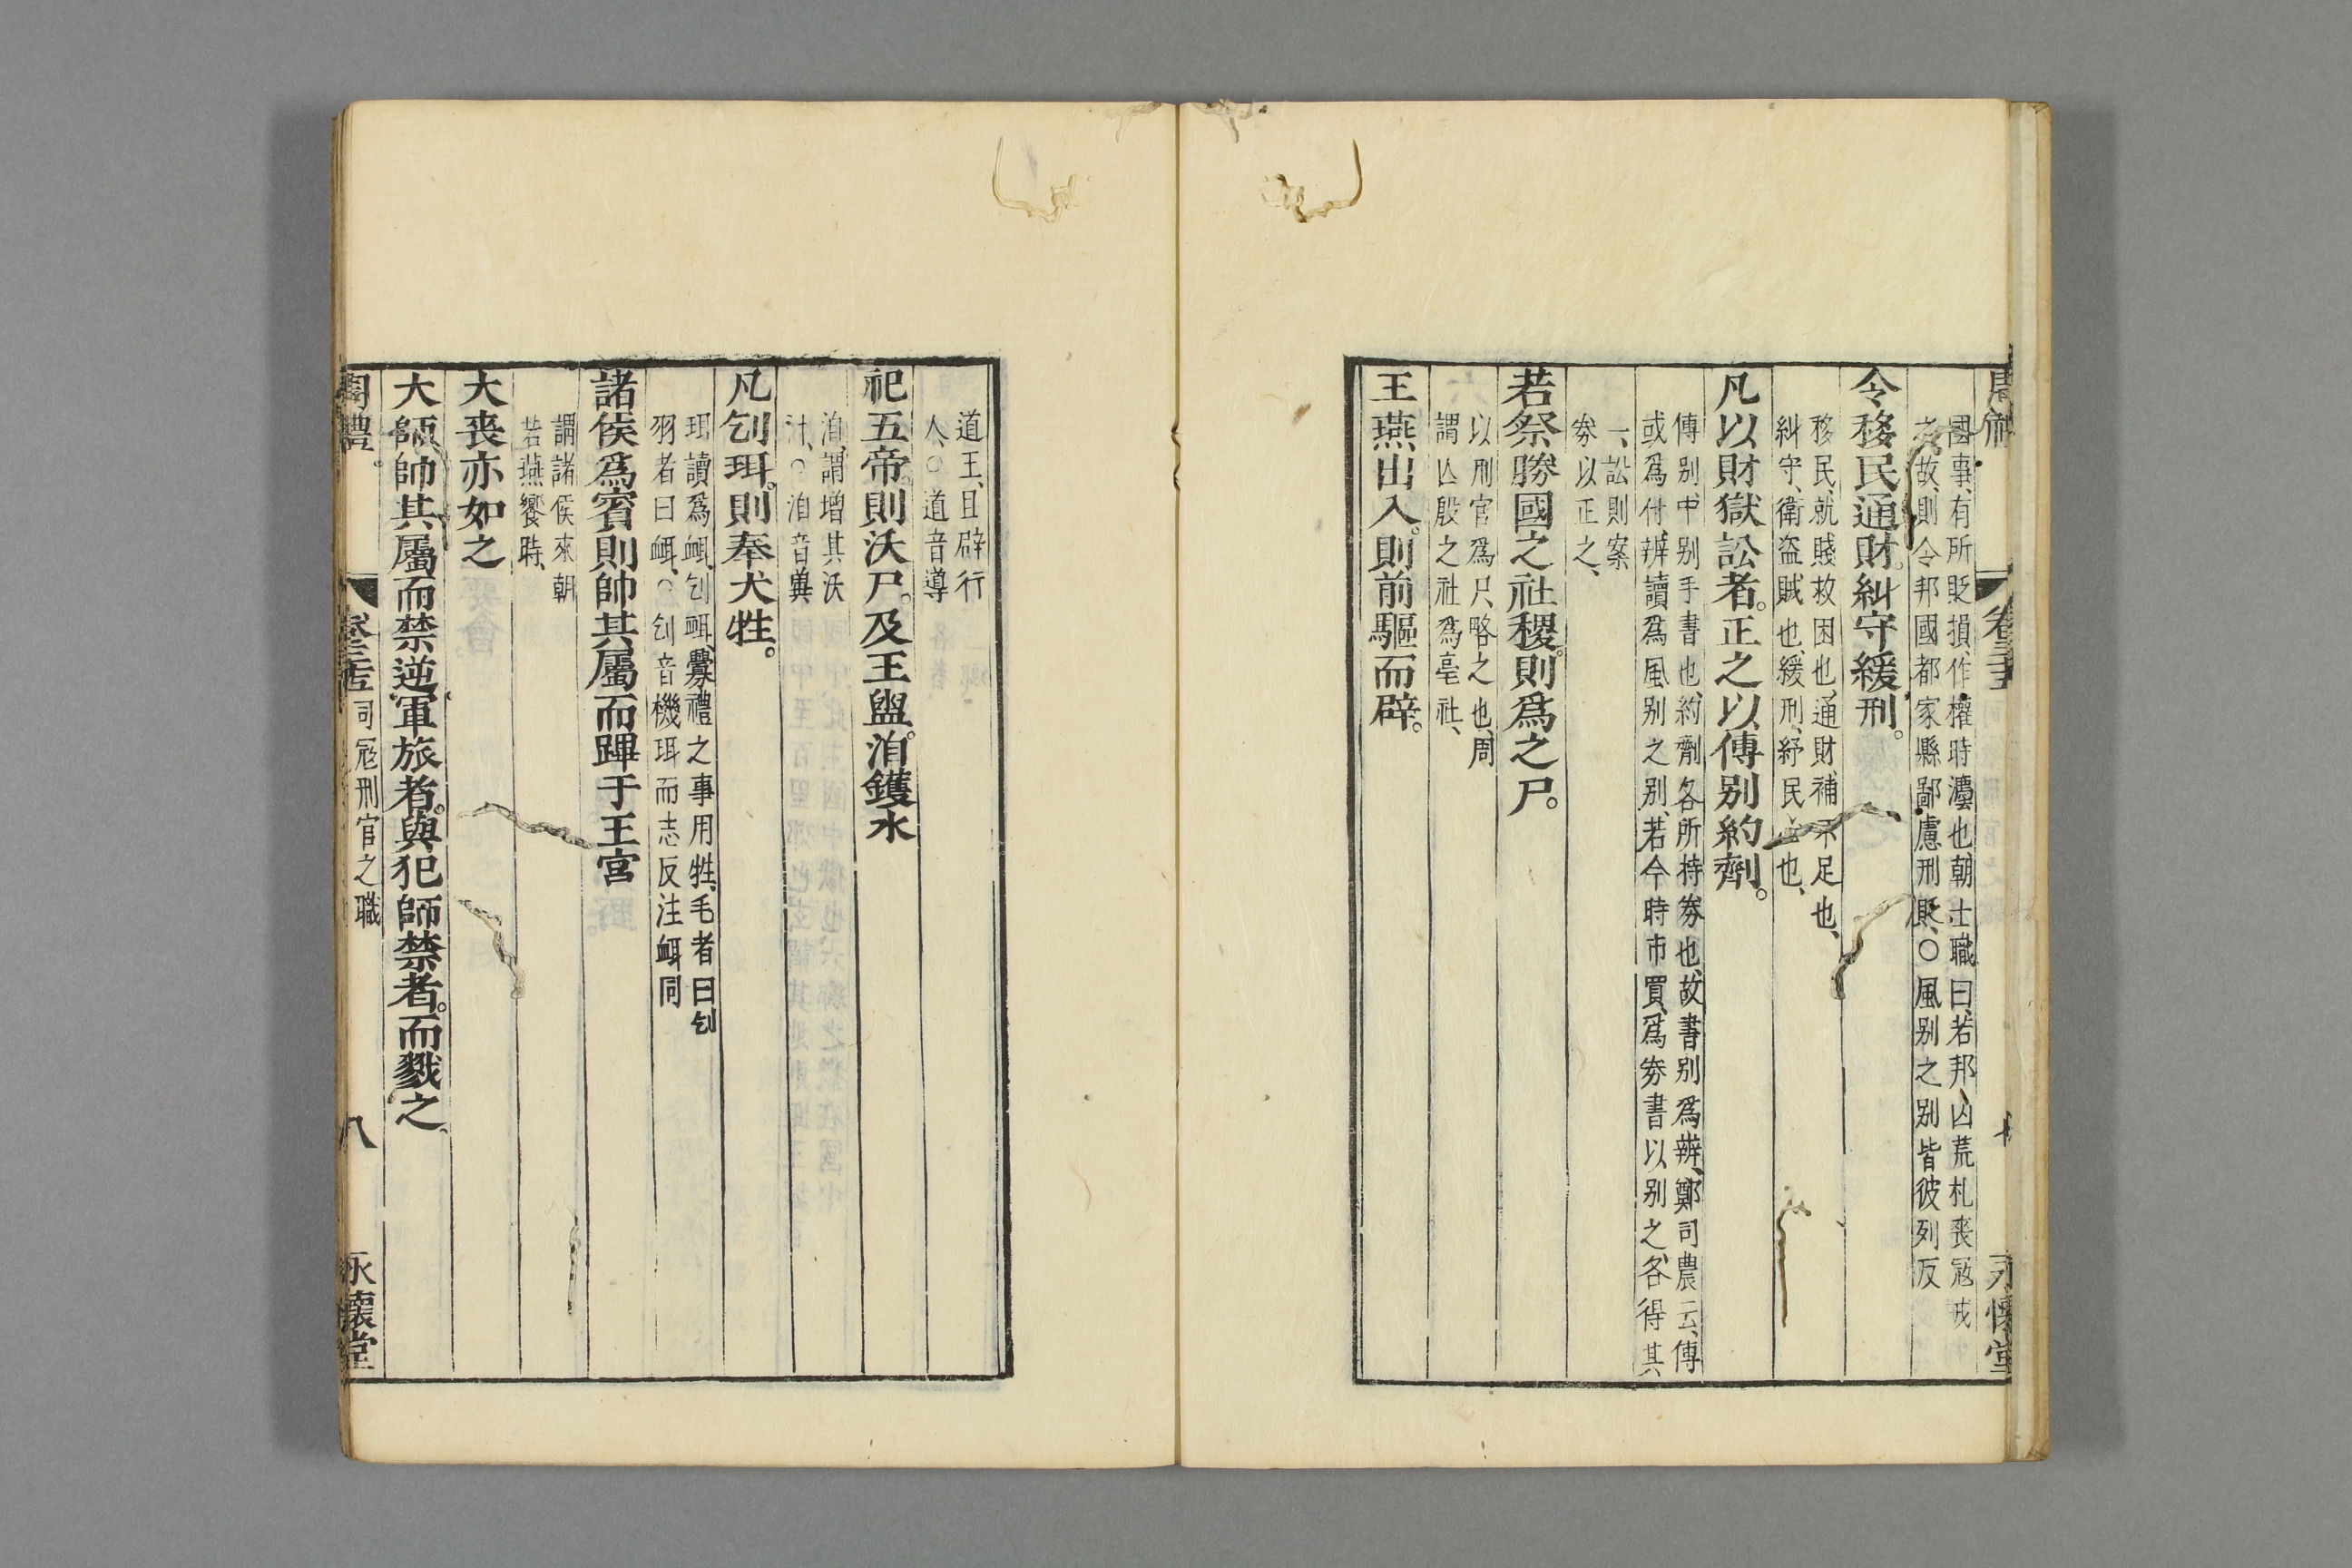 國事、有所貶損、作權時灋也、朝士職曰、若邦凶荒札喪宼戎
之故、則令邦國都家縣鄙慮刑貶、○風别之别皆彼列反
令移民通財。糾守緩刑。
移民、就賤救困也、通財、補不足也、
糾守、衛盜賊也、緩刑、紓民心也、
凡以財獄訟者。正之以傅别約劑。
傅别、中别手書也、約劑各所持券也、故書别爲辨、鄭司農云、傅
或爲付、辨讀爲風别之别、若今時市買、爲券書以别之、各得其
一、訟則案
券以正之、
若祭勝國之社稷。則爲之尸。
以刑官爲尸、略之也、周
謂亾殷之社爲亳社、
王燕出入。則前驅而辟。
道王、且辟行
人、○道音導
祀五帝。則沃尸。及王盥。洎鑊水
洎、謂增其沃
汁、○洎音兾
凡刉珥。則奉犬牲。
珥讀爲衈、刉衈、釁禮之事用牲、毛者曰刉
羽者曰衈、○刉音機珥而志反注衈同
諸侯爲賓則帥其屬而蹕于王宮
謂諸侯來朝
若燕饗時、
大喪亦如之
大師帥其屬而禁逆軍旅者。與犯師禁者。而戮之。
周禮。 司宼刑官之職 八 永懷堂